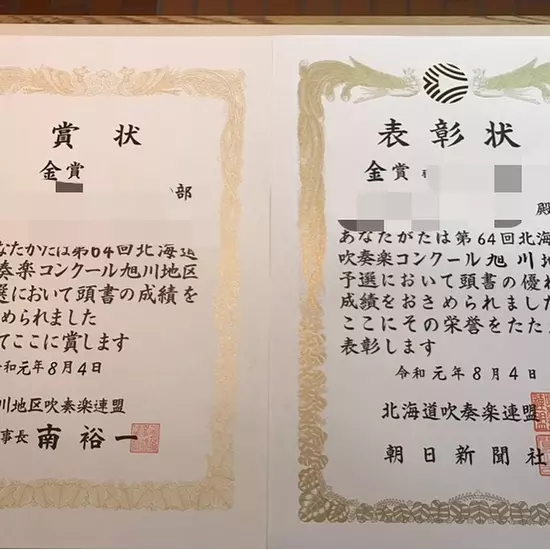 賞状
金賞
部
なたがたは第64回北海道
奏楽コンクール旭川地区
選において頭書の成績を
められました
てここに賞します
和元年8月4日
川地区吹奏楽連盟
事長 南裕一
表彰状
金賞
殿
あなたがたは第64回北海
吹奏楽コンクール旭川地
予選において頭書の優れ
成績をおさめられました
ここにその栄誉をたたえ
表彰します
令和元年8月4日
北海道吹奏楽連盟
朝日新聞社